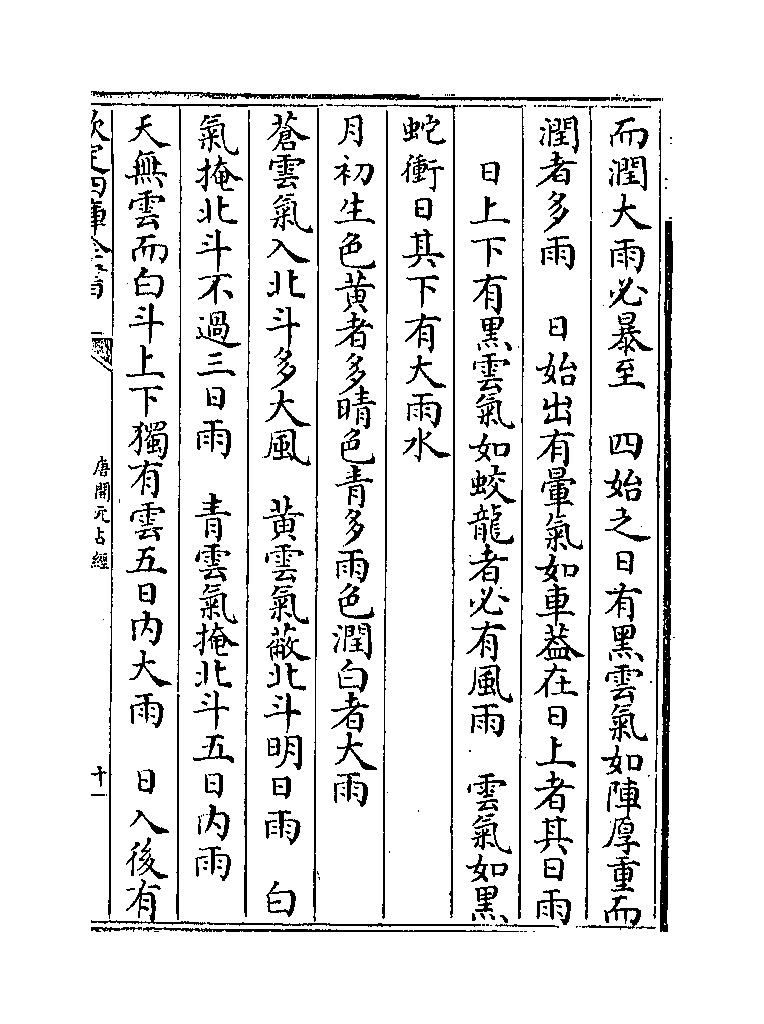 而潤大雨必暴至　四始之日有黑雲氣如陣厚重而
潤者多雨　日始出有暈氣如車葢在日上者其日雨
　日上下有黑雲氣如蛟龍者必有風雨　雲氣如黑
蛇衝日其下有大雨水
月初生色黄者多晴色青多雨色潤白者大雨
蒼雲氣入北斗多大風　黄雲氣蔽北斗明日雨　白
氣掩北斗不過三日雨　青雲氣掩北斗五日内雨
天無雲而白斗上下獨有雲五日内大雨　日入後有
欽定四庫全書
唐開元占經
十一